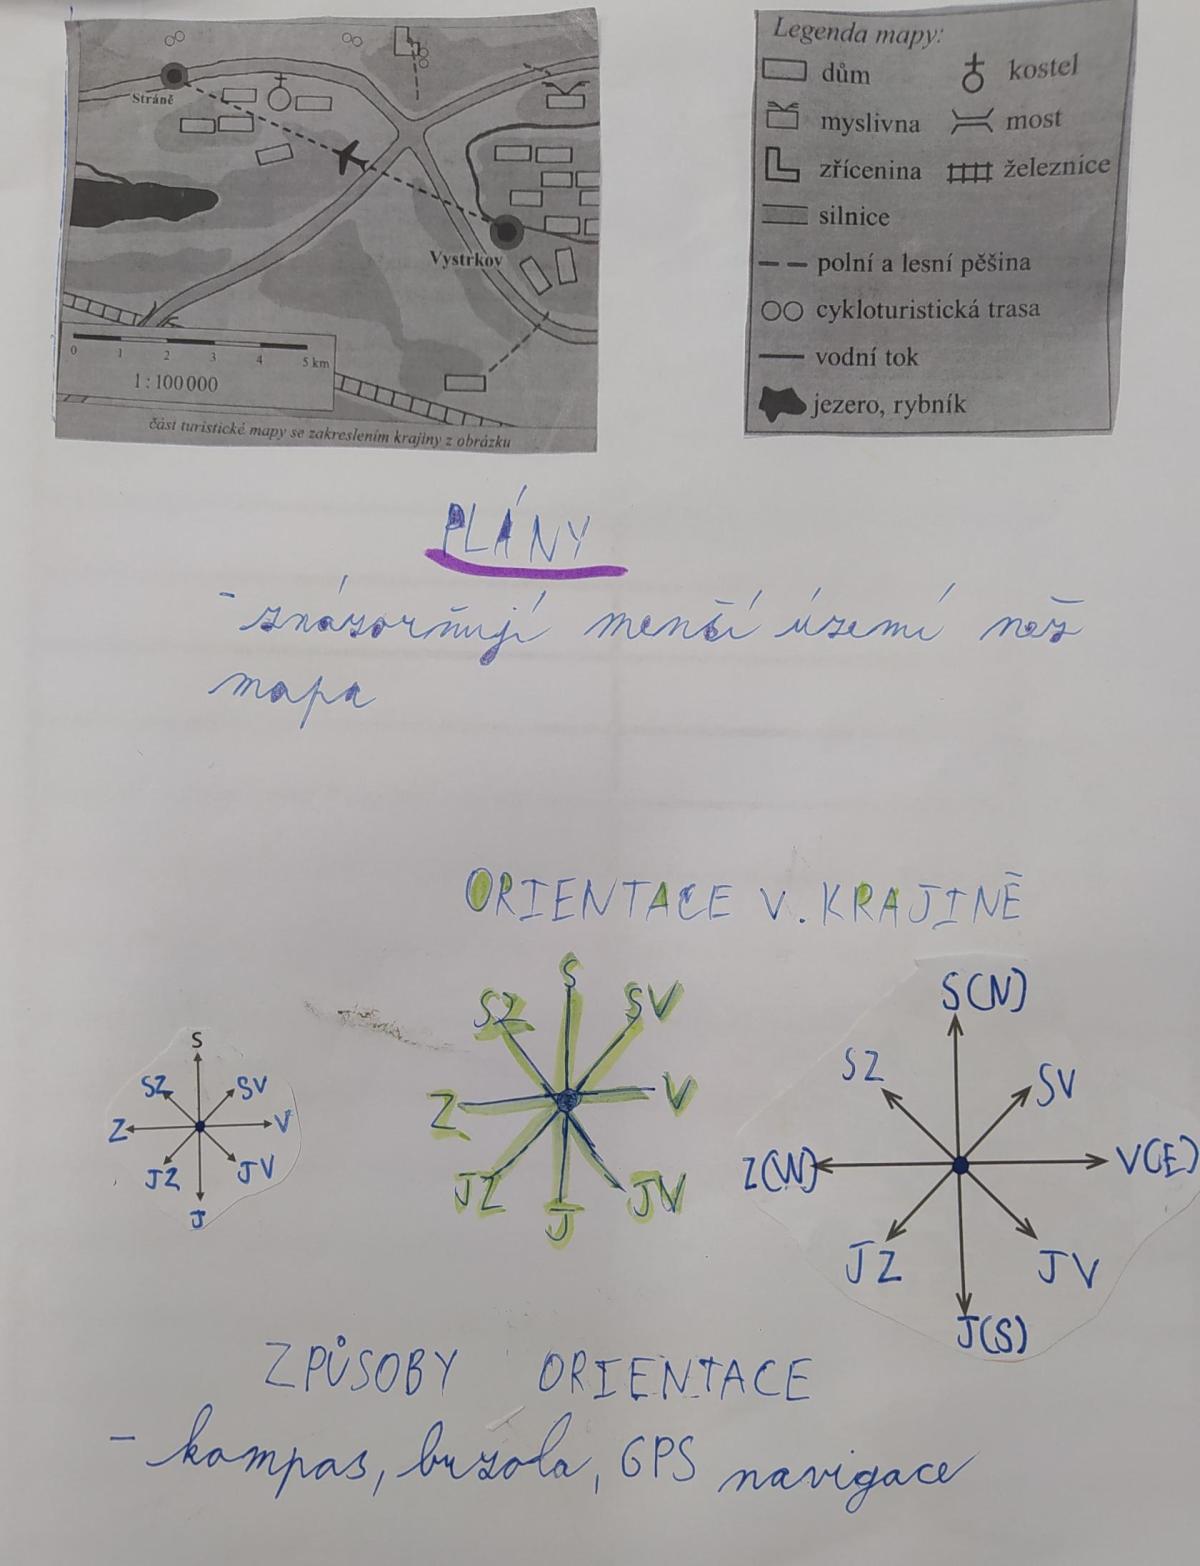 Stráně
Vystrkov
0 1 2 3 4 5 km
1 : 100 000
část turistické mapy se zakreslením krajiny z obrázku
Legenda mapy:
dům
kostel
myslivna
most
zřícenina
železnice
silnice
polní a lesní pěšina
cykloturistická trasa
vodní tok
jezero, rybník
PLÁNY
- znázorňují menší území než
mapa
ORIENTACE V. KRAJINĚ
S
SZ SV
Z V
JZ JV
J
S
SZ SV
Z V
JZ JV
J
S(N)
SZ SV
Z(W) V(E)
JZ JV
J(S)
ZPŮSOBY ORIENTACE
- kompas, buzola, GPS navigace